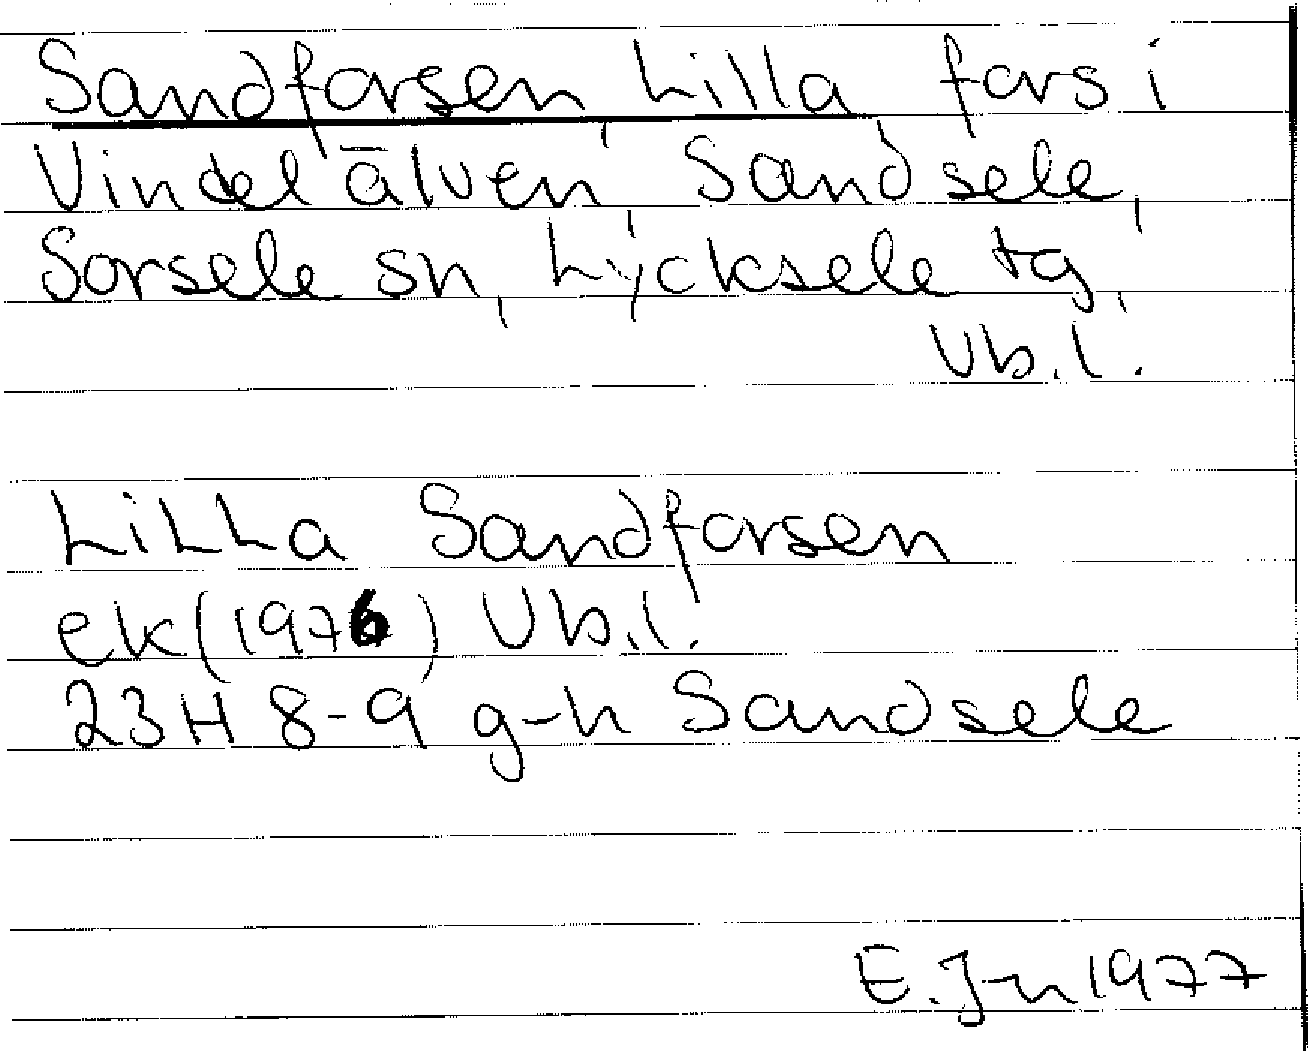 Sandforsen, Lilla, fors i
Vindelälven, Sandsele,
Sorsele sn, Lycksele tg,
Vb.l.
Lilla Sandforsen
ek (1976) Vb.l.
23H 8-9 g-h Sandsele
E.J-n 1977